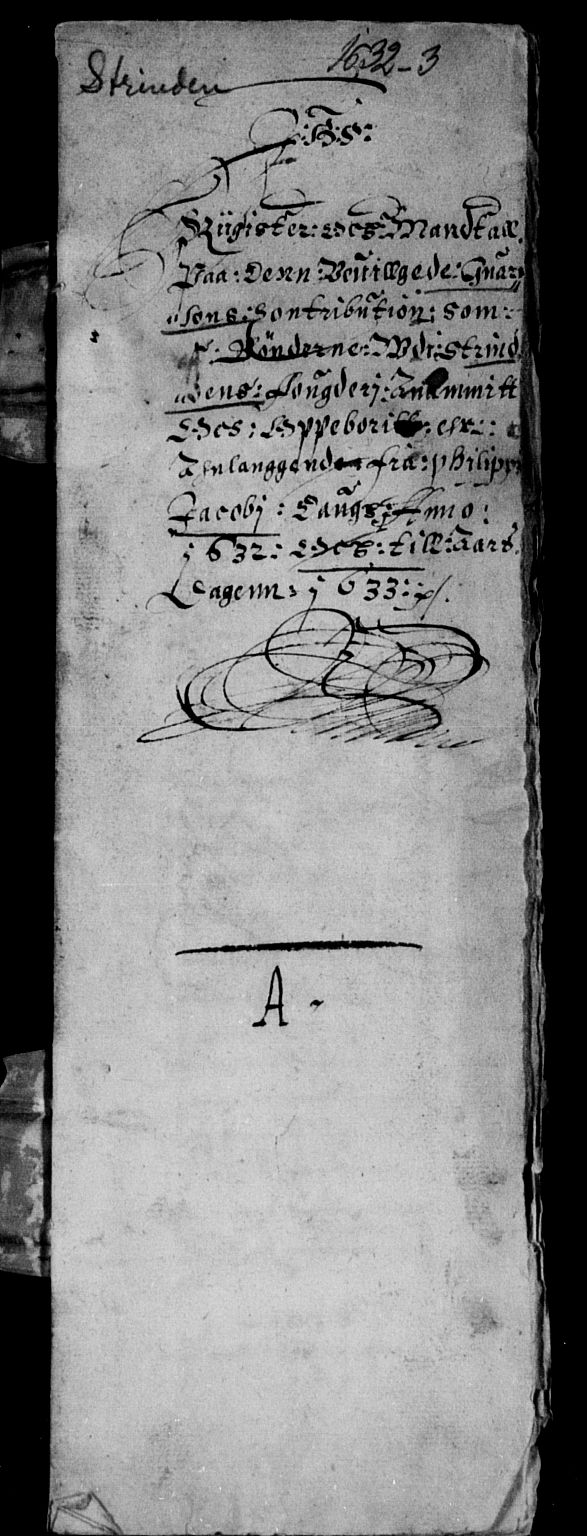 1632-3
Strinden
J: H: S:
Rügister: Och: Mandtall.
Paa: Denn: Beuillgede: Guarn
isons: Contribution: som:
Bönderne: Wdi: Strind
dens: Fougderj: Anammitt
Och: Oppeboritt: ehr:
Anlanggende: fra: philippi
Jacobj: Daugs: Anno:
1632: Och: till: Aars
Dagenn: 1633:
A -